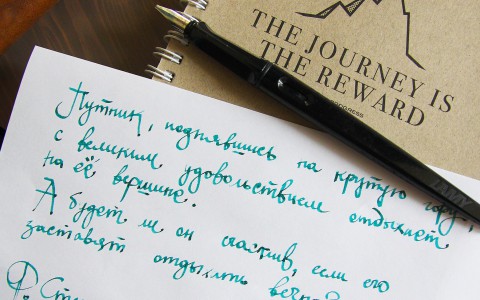 THE JOURNEY IS
THE REWARD
LAMY
Путник, поднявшись на крутую гору,
с великим удовольствием отдыхает
на её вершине.
А будет ли он счастлив, если его
заставят отдыхать